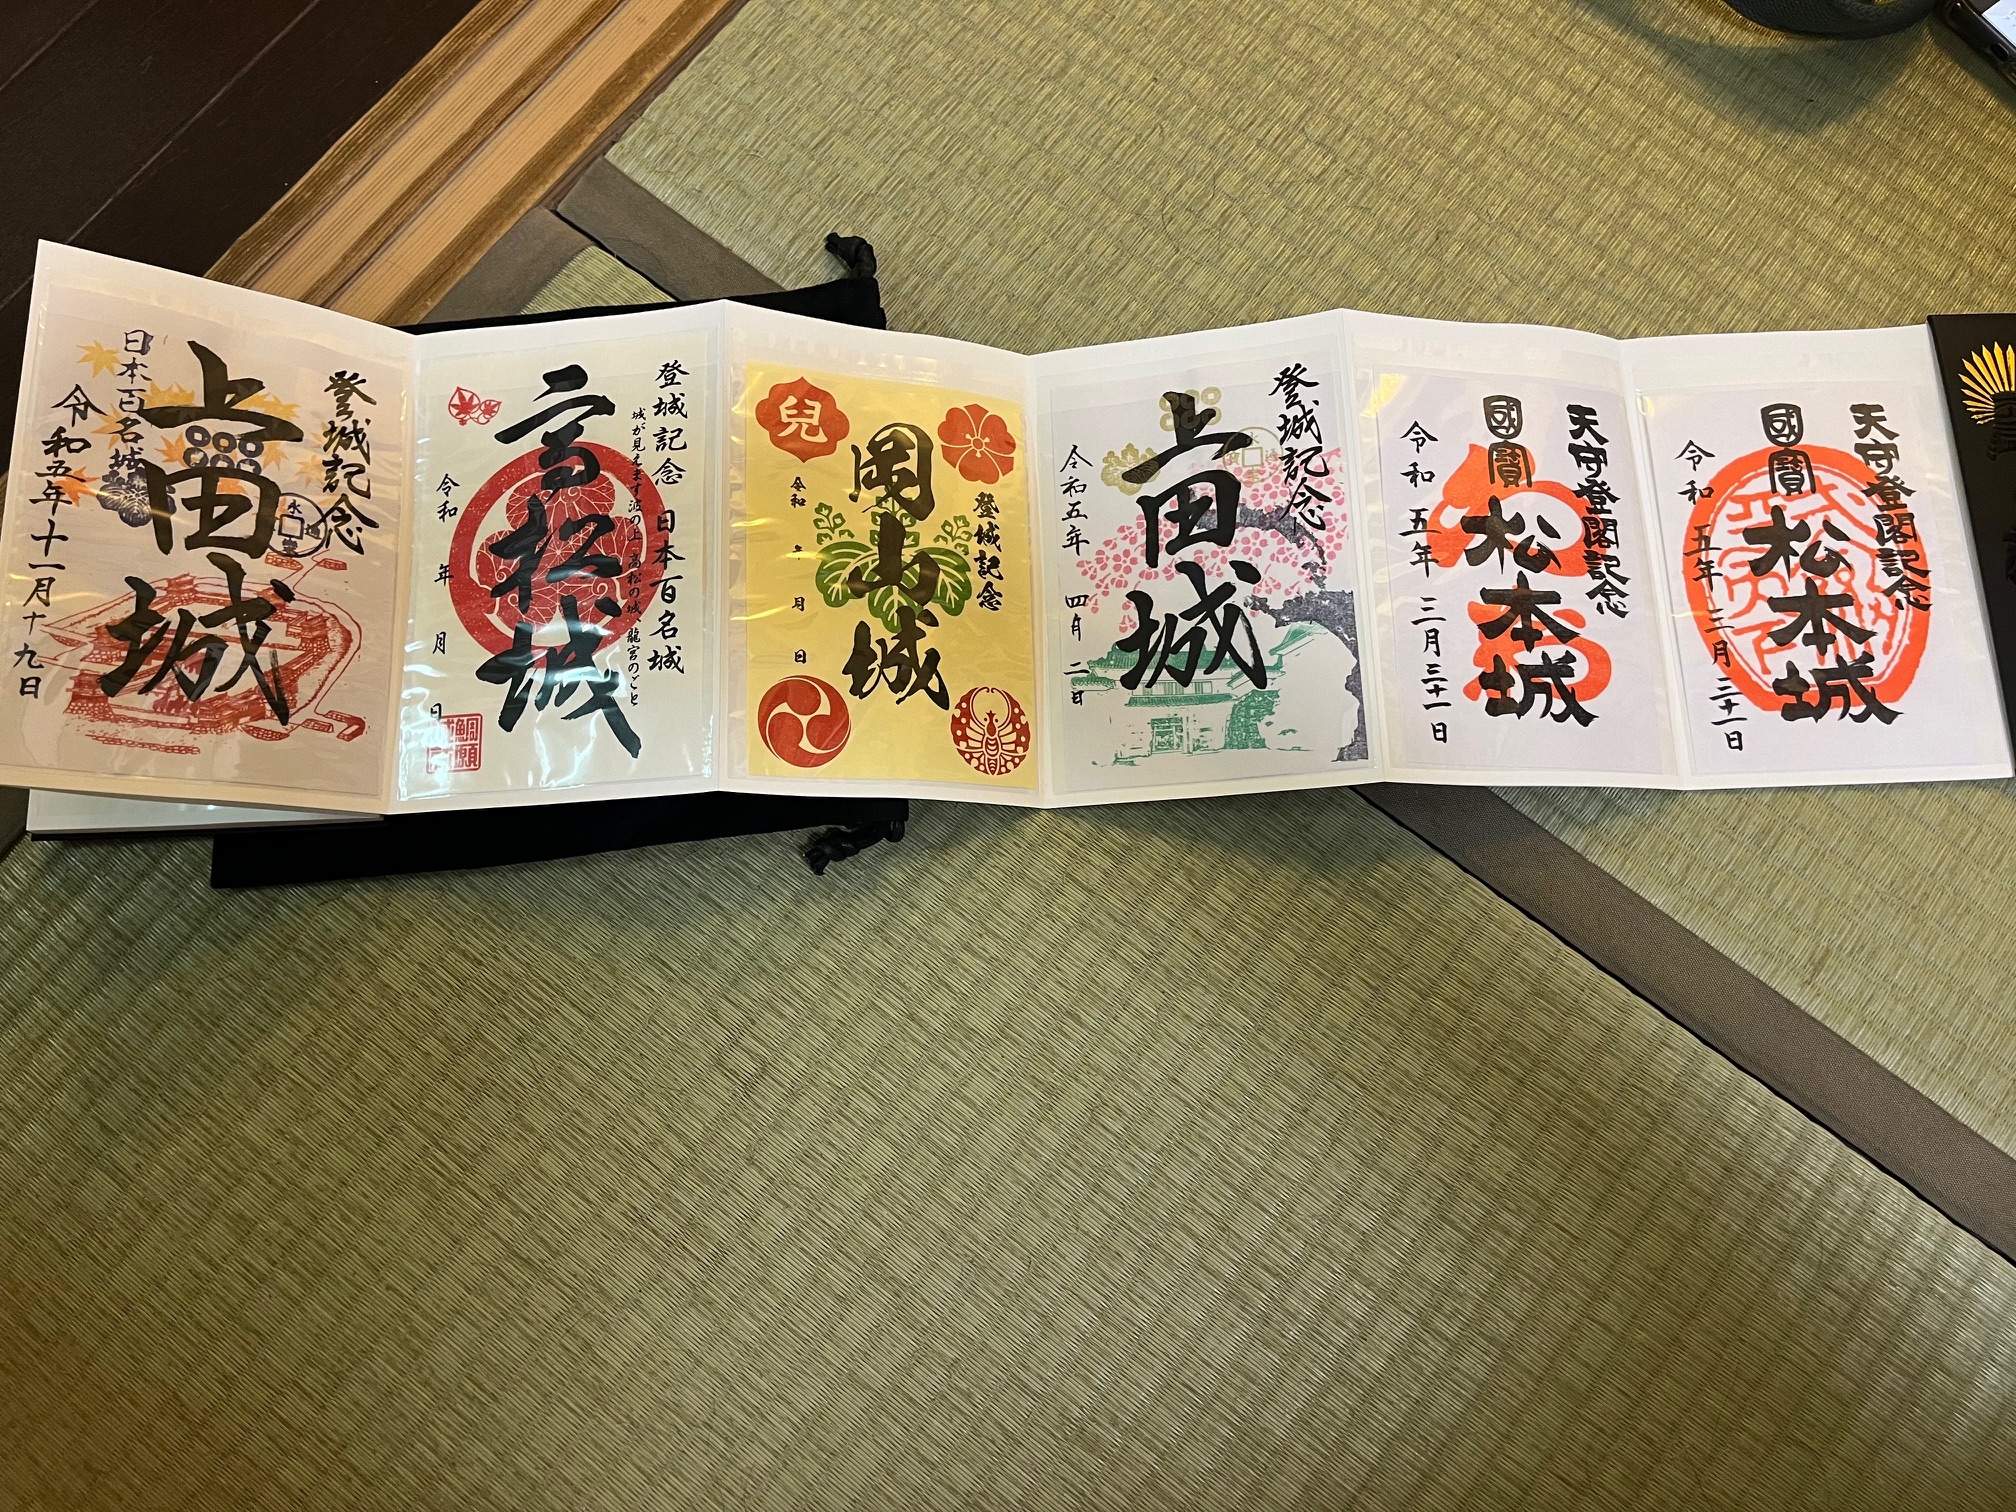 天守登閣記念
國寶 松本城
令和五年三月三十一日
天守登閣記念
國寶 松本城
令和五年三月三十一日
登城記念
上田城
令和五年四月二日
登城記念
岡山城
兒
令和 年 月 日
登城記念 日本百名城
城が見えます波の上 高松の城、龍宮のごと
高松城
令和 年 月 日
登城記念
上田城
日本百名城
令和五年十一月十九日